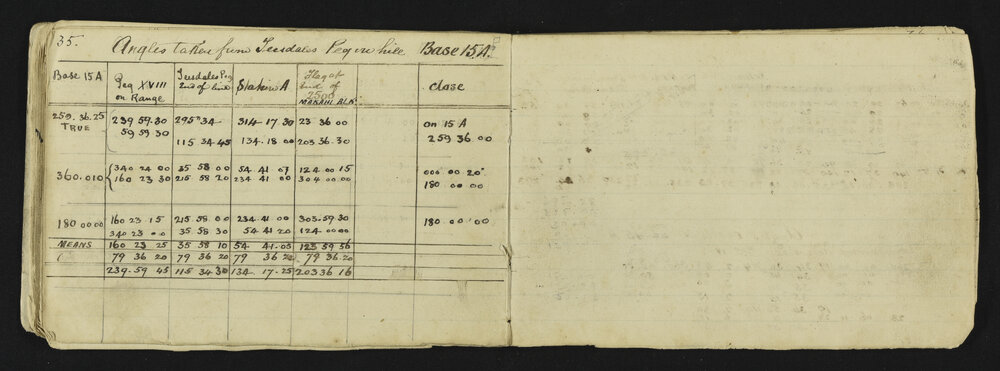 35. Angles taken from Teesdales Peg on hill Base 15A.
Base 15A Peg XVIII on Range Teesdales Peg 2nd of line Station A Flag at 2nd of 2500 MAKAHI BLK. Close
259.36.25 239 59.30 295° 34 314 17 30 23 36 00 on 15 A
TRUE 59 59 30
115 34 45 134.18 00 203 36.30 259 36.00
340 24 00 35 58 00 54.41 07 124 00 15 000 00 20"
360.010 160 23 30 215 58 20 234 41 00 304 00 00 180 00 00
180 00 00 160 23 15 215 58 00 234.41 00 303.59 30 180.00.00
340 23 00 35 58 30 54 41 20 124.00 00
MEANS 160 23 25 35 58 10 54 41.05 123 59 56
79 36 20 79 36 20 79 36 20 79 36.20
239.59 45 115 34 30 134 17.25 203 36 16